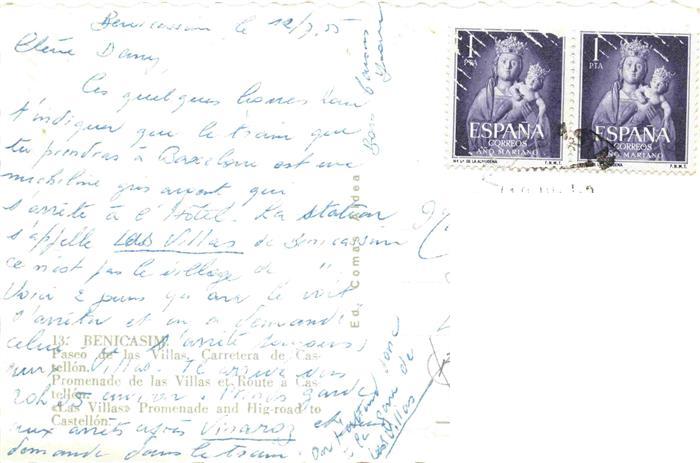 Benicassim le 12/7.55
Chérie Dany,
Ces quelques lignes pour
t'indiquer que le train que
tu prendras à Barcelone est une
micheline qui avant que
s'arrête à l'Hôtel. La station
s'appelle Las Villas de Benicassim
ce n'est pas le village de " "
Voici 2 jours qu' le voit
s'arrêter et on a demandé
celui s'arrête toujours
aux Villas. Il arrive vers
20h 35 environ. Prends garde
aux arrêts après Vinaroz et
demande dans le train.
Bon
On t'attend donc
à la gare de
Las Villas
13.- BENICASIM
Paseo de las Villas. Carretera de Cas-
tellón.
Promenade de las Villas et Route a Cas-
tellón.
«Las Villas» Promenade and Hig-road to
Castellón.
Ed. Comas Aldea
1 PTA
ESPAÑA
CORREOS
AÑO MARIANO
Nª Sª DE LA ALMUDENA F.N.M.T.
1 PTA
ESPAÑA
CORREOS
AÑO MARIANO
Nª Sª DE LA ALMUDENA F.N.M.T.